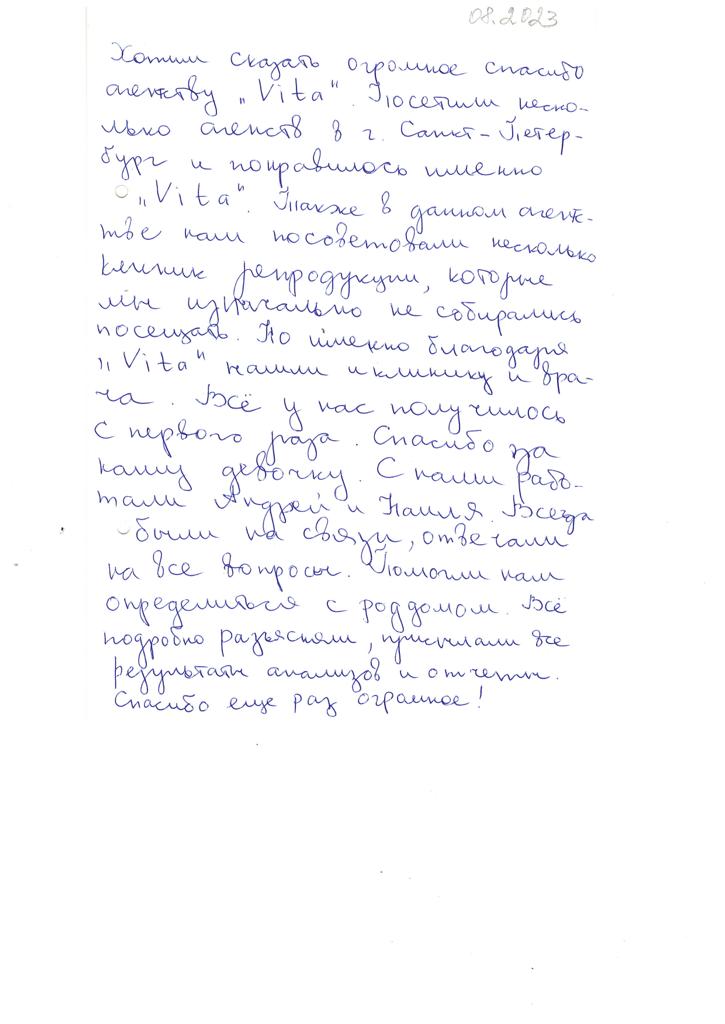 08.2023
Хотим сказать огромное спасибо
агентству „Vita". Посетили неско-
лько агенств в г. Санкт-Петер-
бург и понравилось именно
„Vita". Также в данном агент-
тве нам посоветовали несколько
клиник репродукции, которые
мы изначально не собирались
посещать. Но именно благодаря
„Vita" нашли и клинику и вра-
ча. Всё у нас получилось
с первого раза. Спасибо за
нашу девочку. С нами рабо-
тали Андрей и Наиля. Всегда
были на связи, отвечали
на все вопросы. Помогли нам
определиться с роддомом. Всё
подробно разъясняли, присылали все
результаты анализов и отчеты.
Спасибо еще раз огромное!